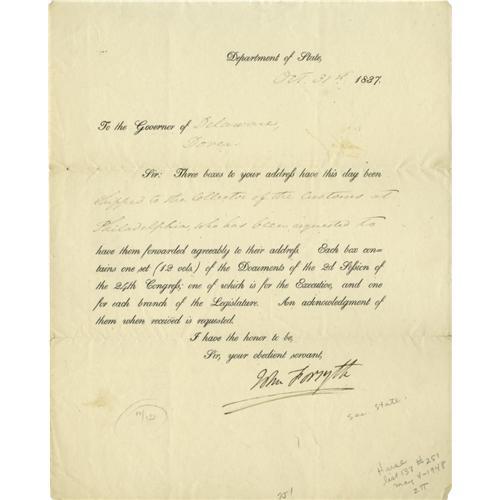 Department of State,
Oct. 31st 1837.
To the Governor of Delaware,
Dover.
Sir: Three boxes to your addreſs have this day been
shipped to the Collector of the Customs at
Philadelphia, who has been requested to
have them forwarded agreeably to their addreſs. Each box con-
tains one set (12 vols.) of the Documents of the 2d Seſsion of
the 24th Congreſs; one of which is for the Executive, and one
for each branch of the Legislature. An acknowledgment of
them when received is requested.
I have the honor to be,
Sir, your obedient servant,
John Forsyth
Sec State.
list 137 #251
May 4-1948
251